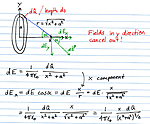 Y
dQ / length ds
r = √x² + a²
a
dEx
x
dEy
dE
Fields in y direction
cancel out!
dE = 1/4πε₀ dQ/x² + a²
x component
dEx = dE cos α = dE x/r = dE x/√x² + a²
= 1/4πε₀ dQ/x² + a² x/√x² + a² = 1/4πε₀ x dQ/(x² + a²)^3/2